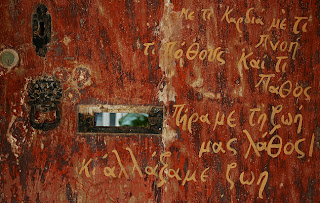 Με τι καρδια με τι
πνοή
τι πάθους και τι
πάθος
πήραμε τη ζωή
μας λάθος!
κι αλλάξαμε ζωή